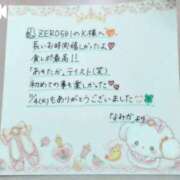 ZERO501のK様へ
長いお時間嬉しかったよ
貪しが最高!!
「あきたか」テイスト(笑)
初めての事も楽しかった
7/4(火)もありがとうございました
なみかより